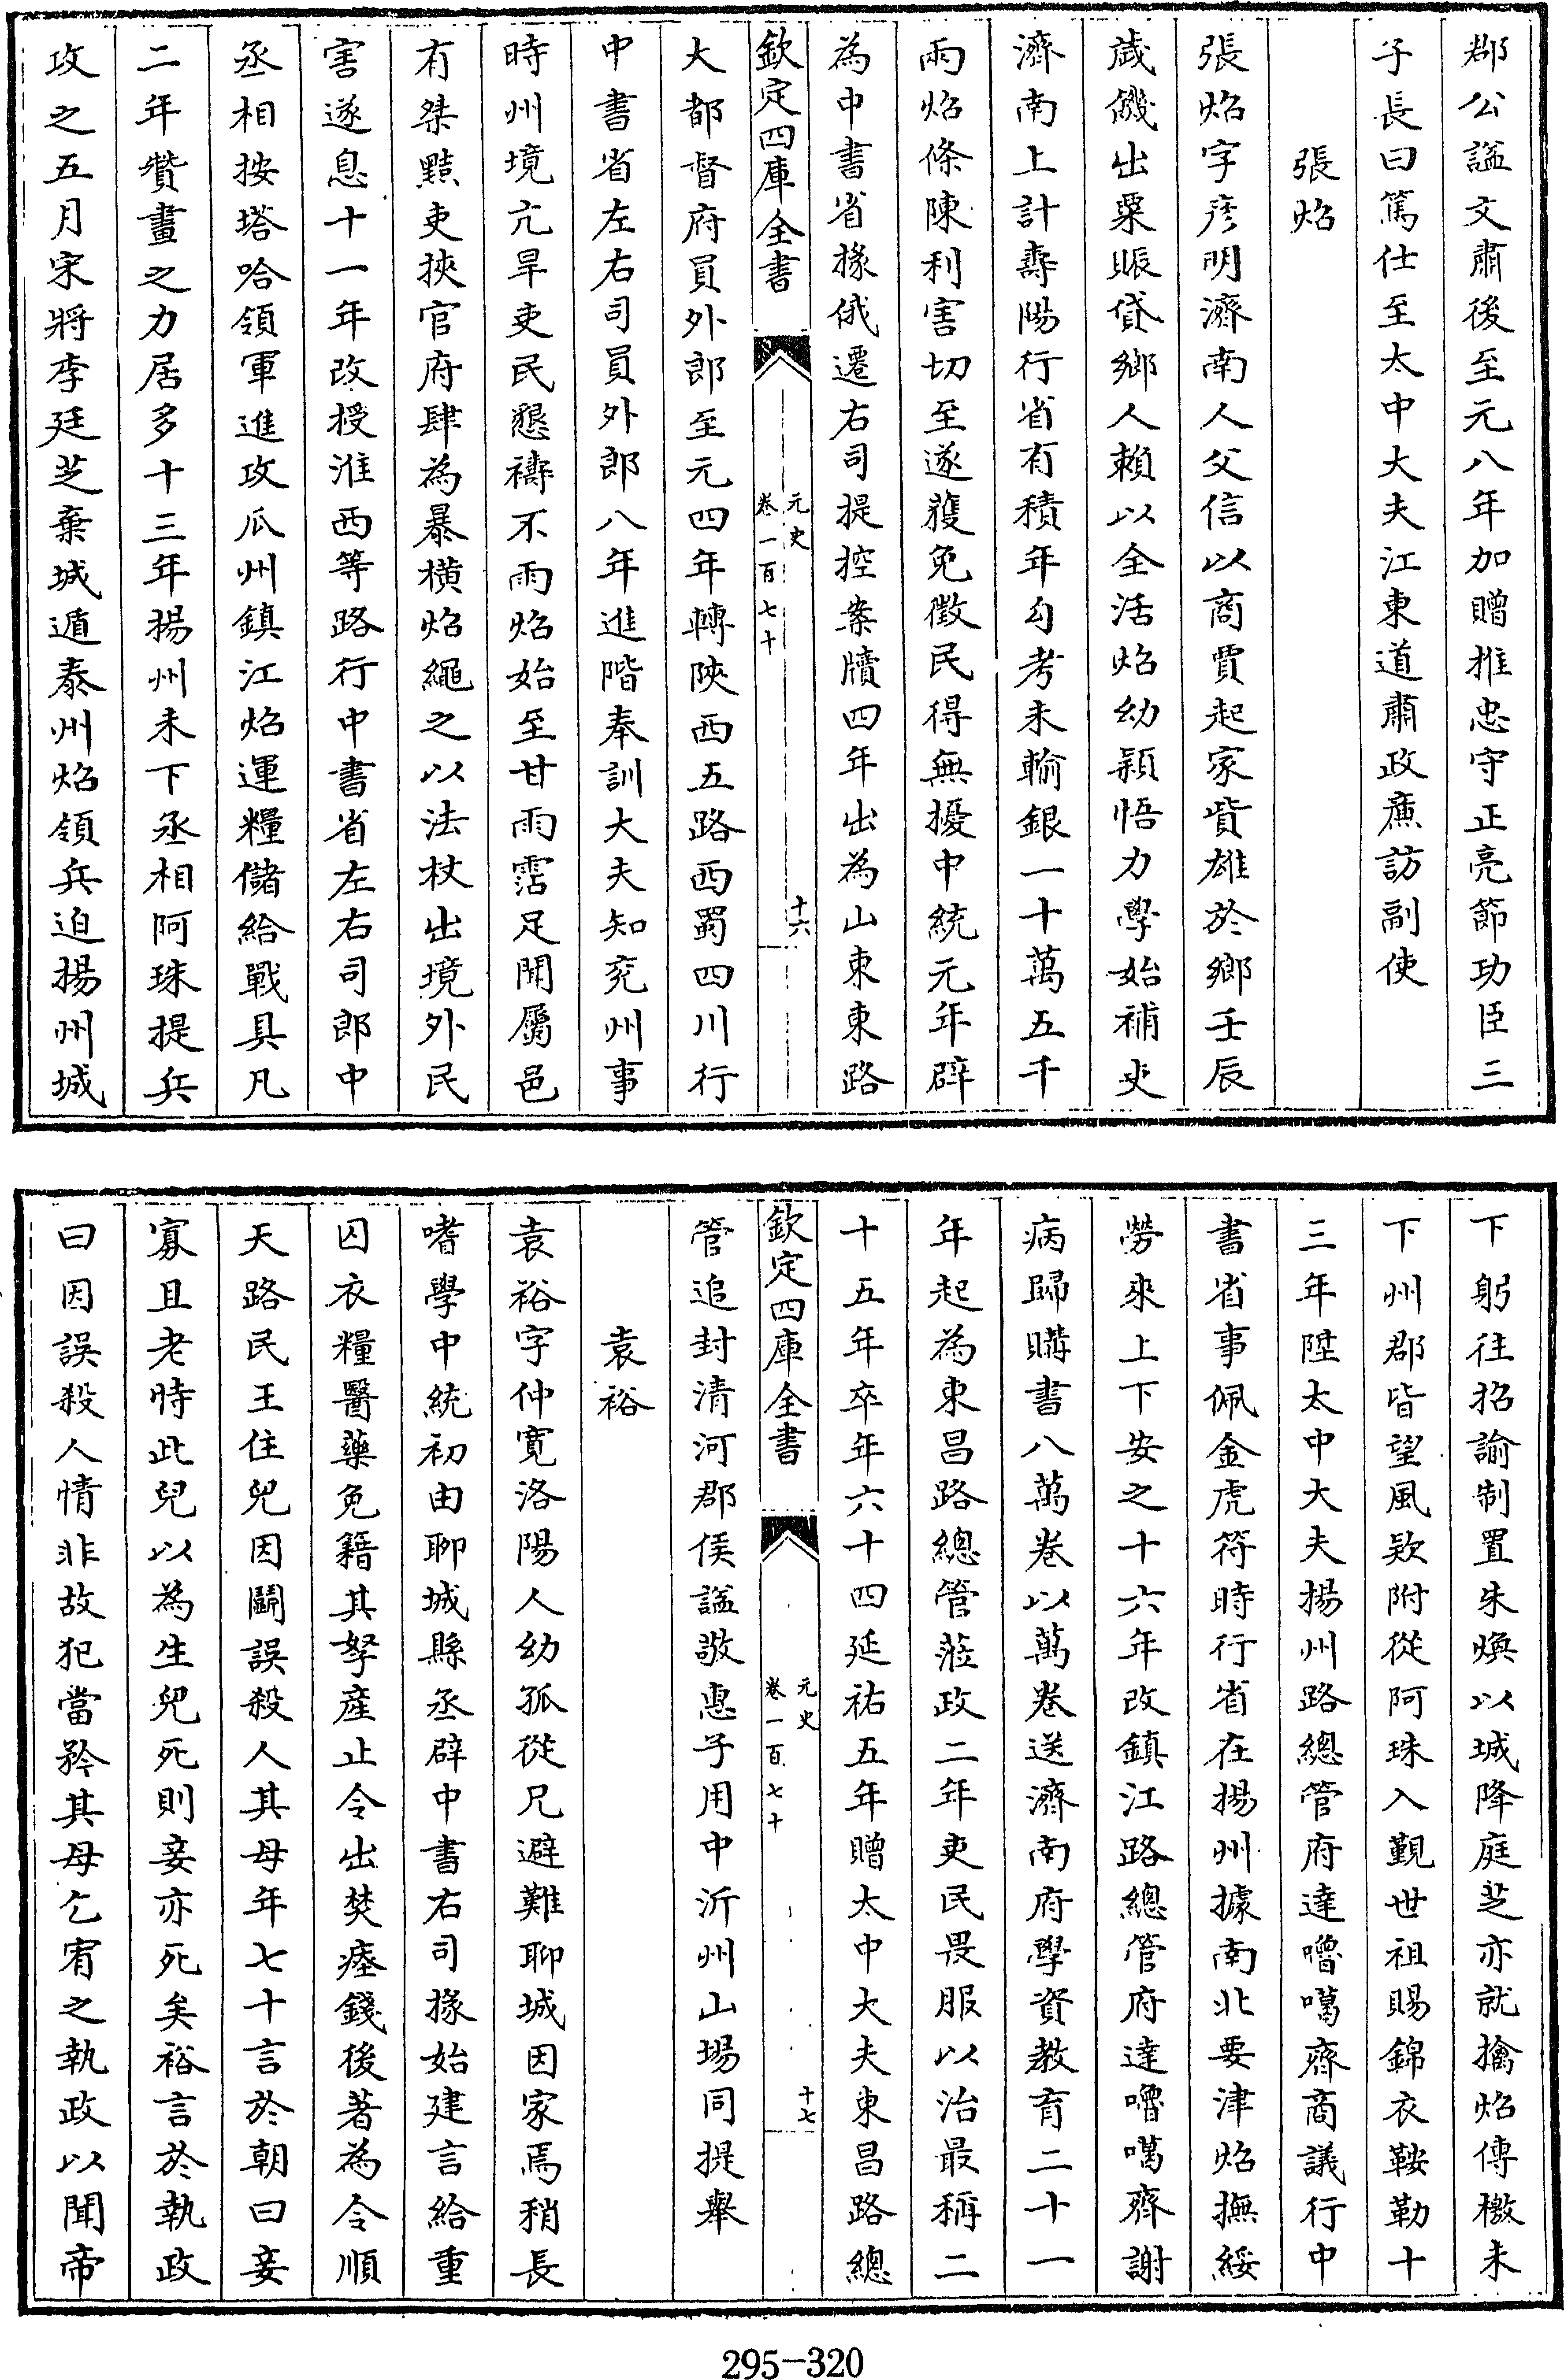 郡公諡文肅後至元八年加贈推忠守正亮節功臣三
子長曰篤仕至太中大夫江東道肅政廉訪副使
張炤
張炤字彦明濟南人父信以商賈起家貲雄於鄉壬辰
歲饑出粟賑貸鄉人賴以全活炤幼穎悟力學始補吏
濟南上計壽陽行省有積年勾考未輸銀一十萬五千
兩炤條陳利害切至遂獲免徵民得無擾中統元年辟
為中書省掾俄遷右司提控案牘四年出為山東東路
欽定四庫全書
元史
卷一百七十
十六
大都督府員外郎至元四年轉陝西五路西蜀四川行
中書省左右司員外郎八年進階奉訓大夫知兖州事
時州境亢旱吏民懇禱不雨炤始至甘雨霑足開屬邑
有桀黠吏挾官府肆為暴橫炤繩之以法杖出境外民
害遂息十一年改授淮西等路行中書省左右司郎中
丞相按塔哈領軍進攻瓜州鎮江炤運糧儲給戰具凡
二年贊畫之力居多十三年揚州未下丞相阿珠提兵
攻之五月宋將李廷芝棄城遁泰州炤領兵迫揚州城
下躬往招諭制置朱煥以城降庭芝亦就擒炤傳檄未
下州郡皆望風欵附從阿珠入覲世祖賜錦衣鞍勒十
三年陞太中大夫揚州路總管府達嚕噶齊商議行中
書省事佩金虎符時行省在揚州據南北要津炤撫綏
勞來上下安之十六年改鎮江路總管府達嚕噶齊謝
病歸購書八萬卷以萬卷送濟南府學資教育二十一
年起為東昌路總管蒞政二年吏民畏服以治最稱二
十五年卒年六十四延祐五年贈太中大夫東昌路總
欽定四庫全書
元史
卷一百七十
十七
管追封清河郡侯諡敬惠子用中沂州山場同提舉
袁裕
袁裕字仲寬洛陽人幼孤從兄避難聊城因家焉稍長
嗜學中統初由聊城縣丞辟中書右司掾始建言給重
囚衣糧醫藥免籍其孥產止令出焚瘞錢後著為令順
天路民王住兒因鬭誤殺人其母年七十言於朝曰妾
寡且老恃此兒以為生兒死則妾亦死矣裕言於執政
曰因誤殺人情非故犯當矜其母乞宥之執政以聞帝
295-320